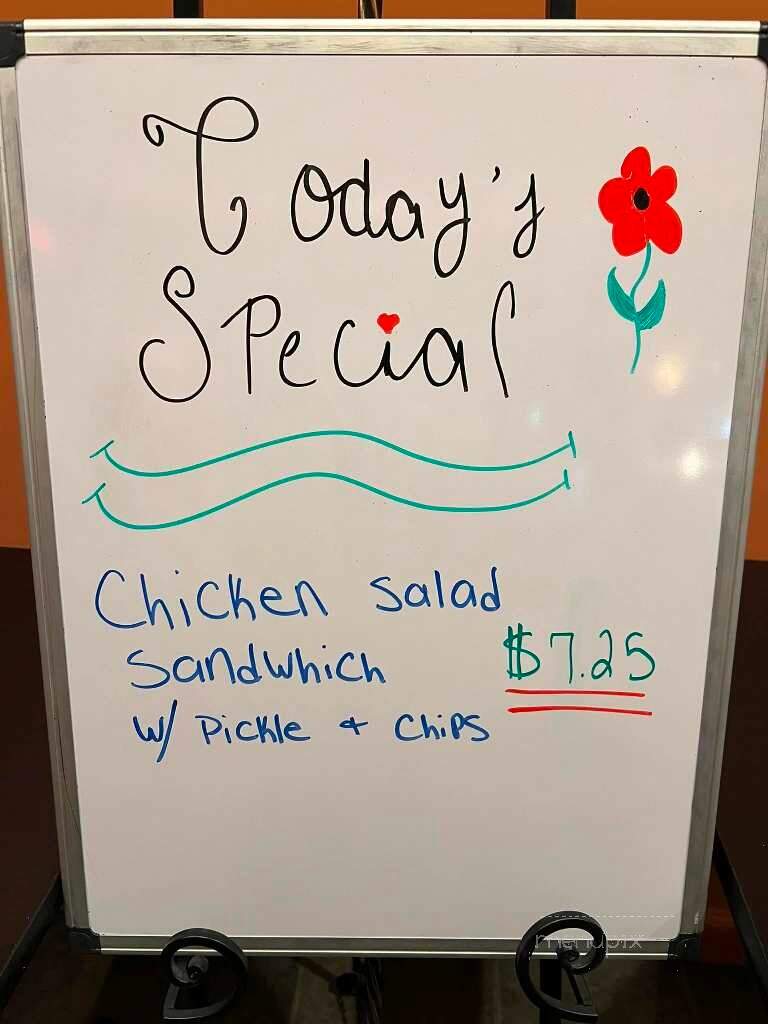 Today's
Special
Chicken salad
Sandwhich
$7.25
w/ Pickle + Chips
menupix